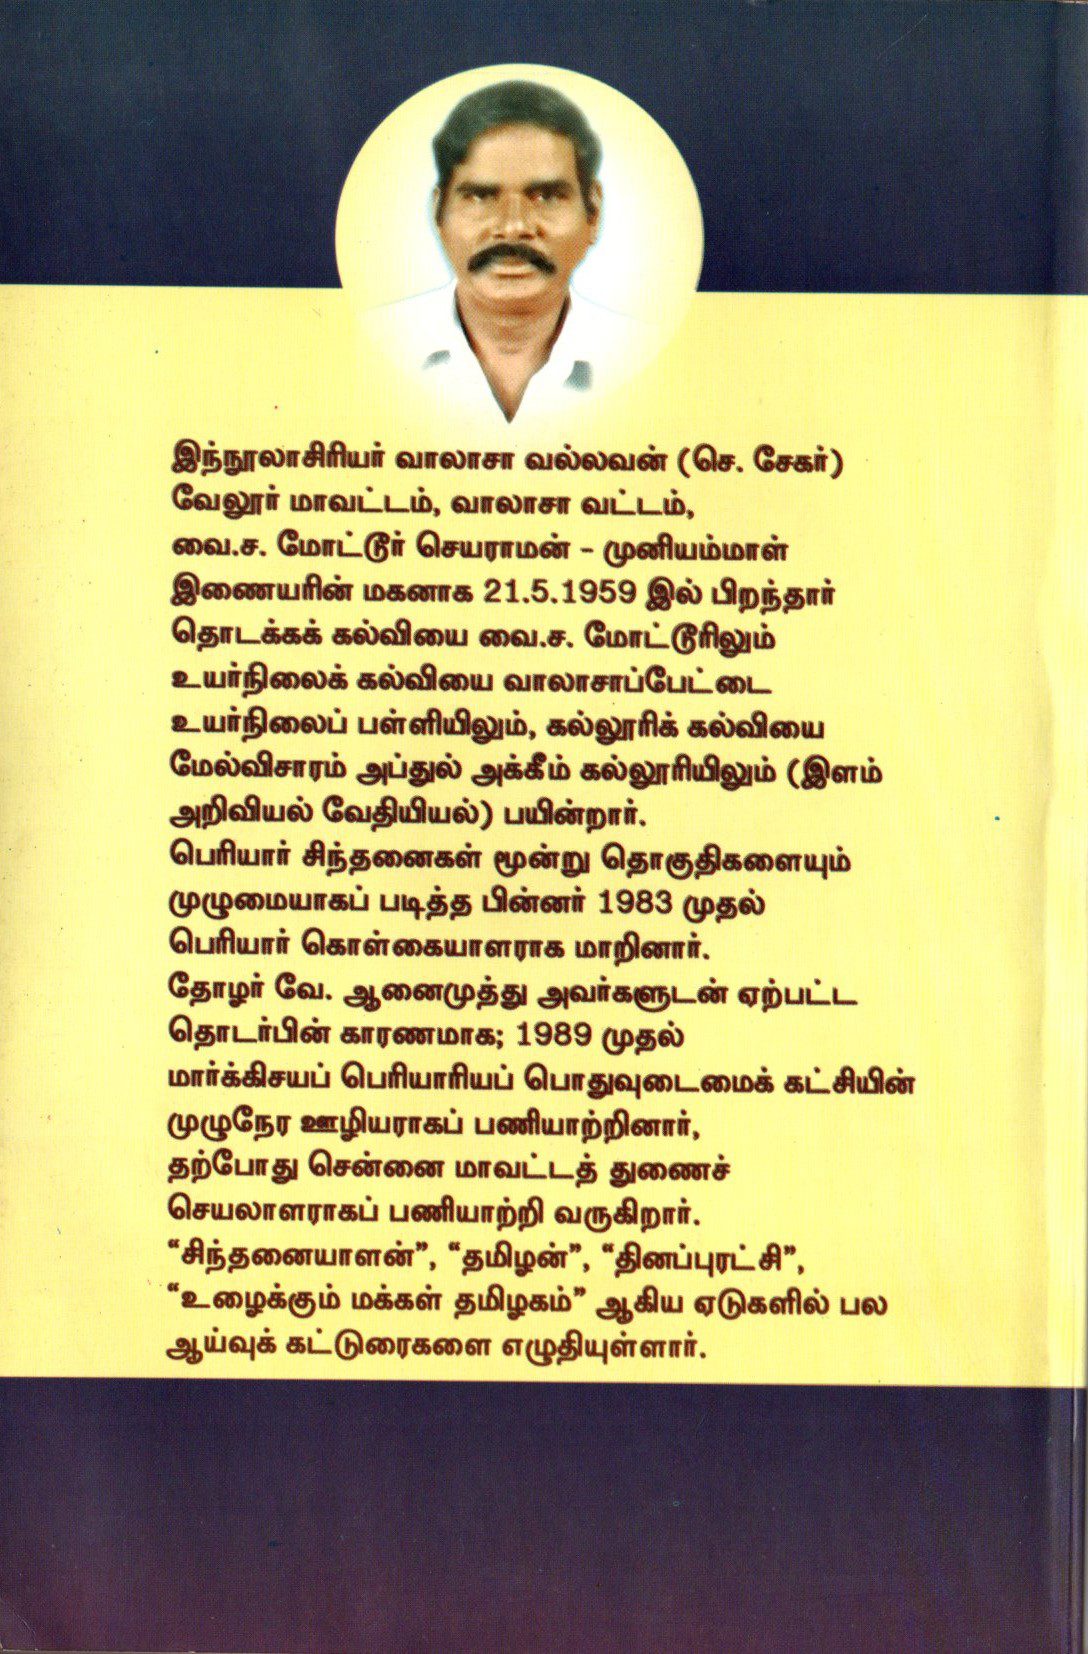 இந்நூலாசிரியர் வாலாசா வல்லவன் (செ. சேகர்)
வேலூர் மாவட்டம், வாலாசா வட்டம்,
வை.ச. மோட்டூர் செயராமன் - முனியம்மாள்
இணையரின் மகனாக 21.5.1959 இல் பிறந்தார்
தொடக்கக் கல்வியை வை.ச. மோட்டூரிலும்
உயர்நிலைக் கல்வியை வாலாசாப்பேட்டை
உயர்நிலைப் பள்ளியிலும், கல்லூரிக் கல்வியை
மேல்விசாரம் அப்துல் அக்கீம் கல்லூரியிலும் (இளம்
அறிவியல் வேதியியல்) பயின்றார்.
பெரியார் சிந்தனைகள் மூன்று தொகுதிகளையும்
முழுமையாகப் படித்த பின்னர் 1983 முதல்
பெரியார் கொள்கையாளராக மாறினார்.
தோழர் வே. ஆனைமுத்து அவர்களுடன் ஏற்பட்ட
தொடர்பின் காரணமாக; 1989 முதல்
மார்க்கிசயப் பெரியாரியப் பொதுவுடைமைக் கட்சியின்
முழுநேர ஊழியராகப் பணியாற்றினார்,
தற்போது சென்னை மாவட்டத் துணைச்
செயலாளராகப் பணியாற்றி வருகிறார்.
“சிந்தனையாளன்”, “தமிழன்”, “தினப்புரட்சி”,
“உழைக்கும் மக்கள் தமிழகம்” ஆகிய ஏடுகளில் பல
ஆய்வுக் கட்டுரைகளை எழுதியுள்ளார்.